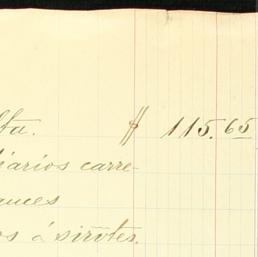 lta. $ 115.65
iarios carre-
ances
os á sirotes.